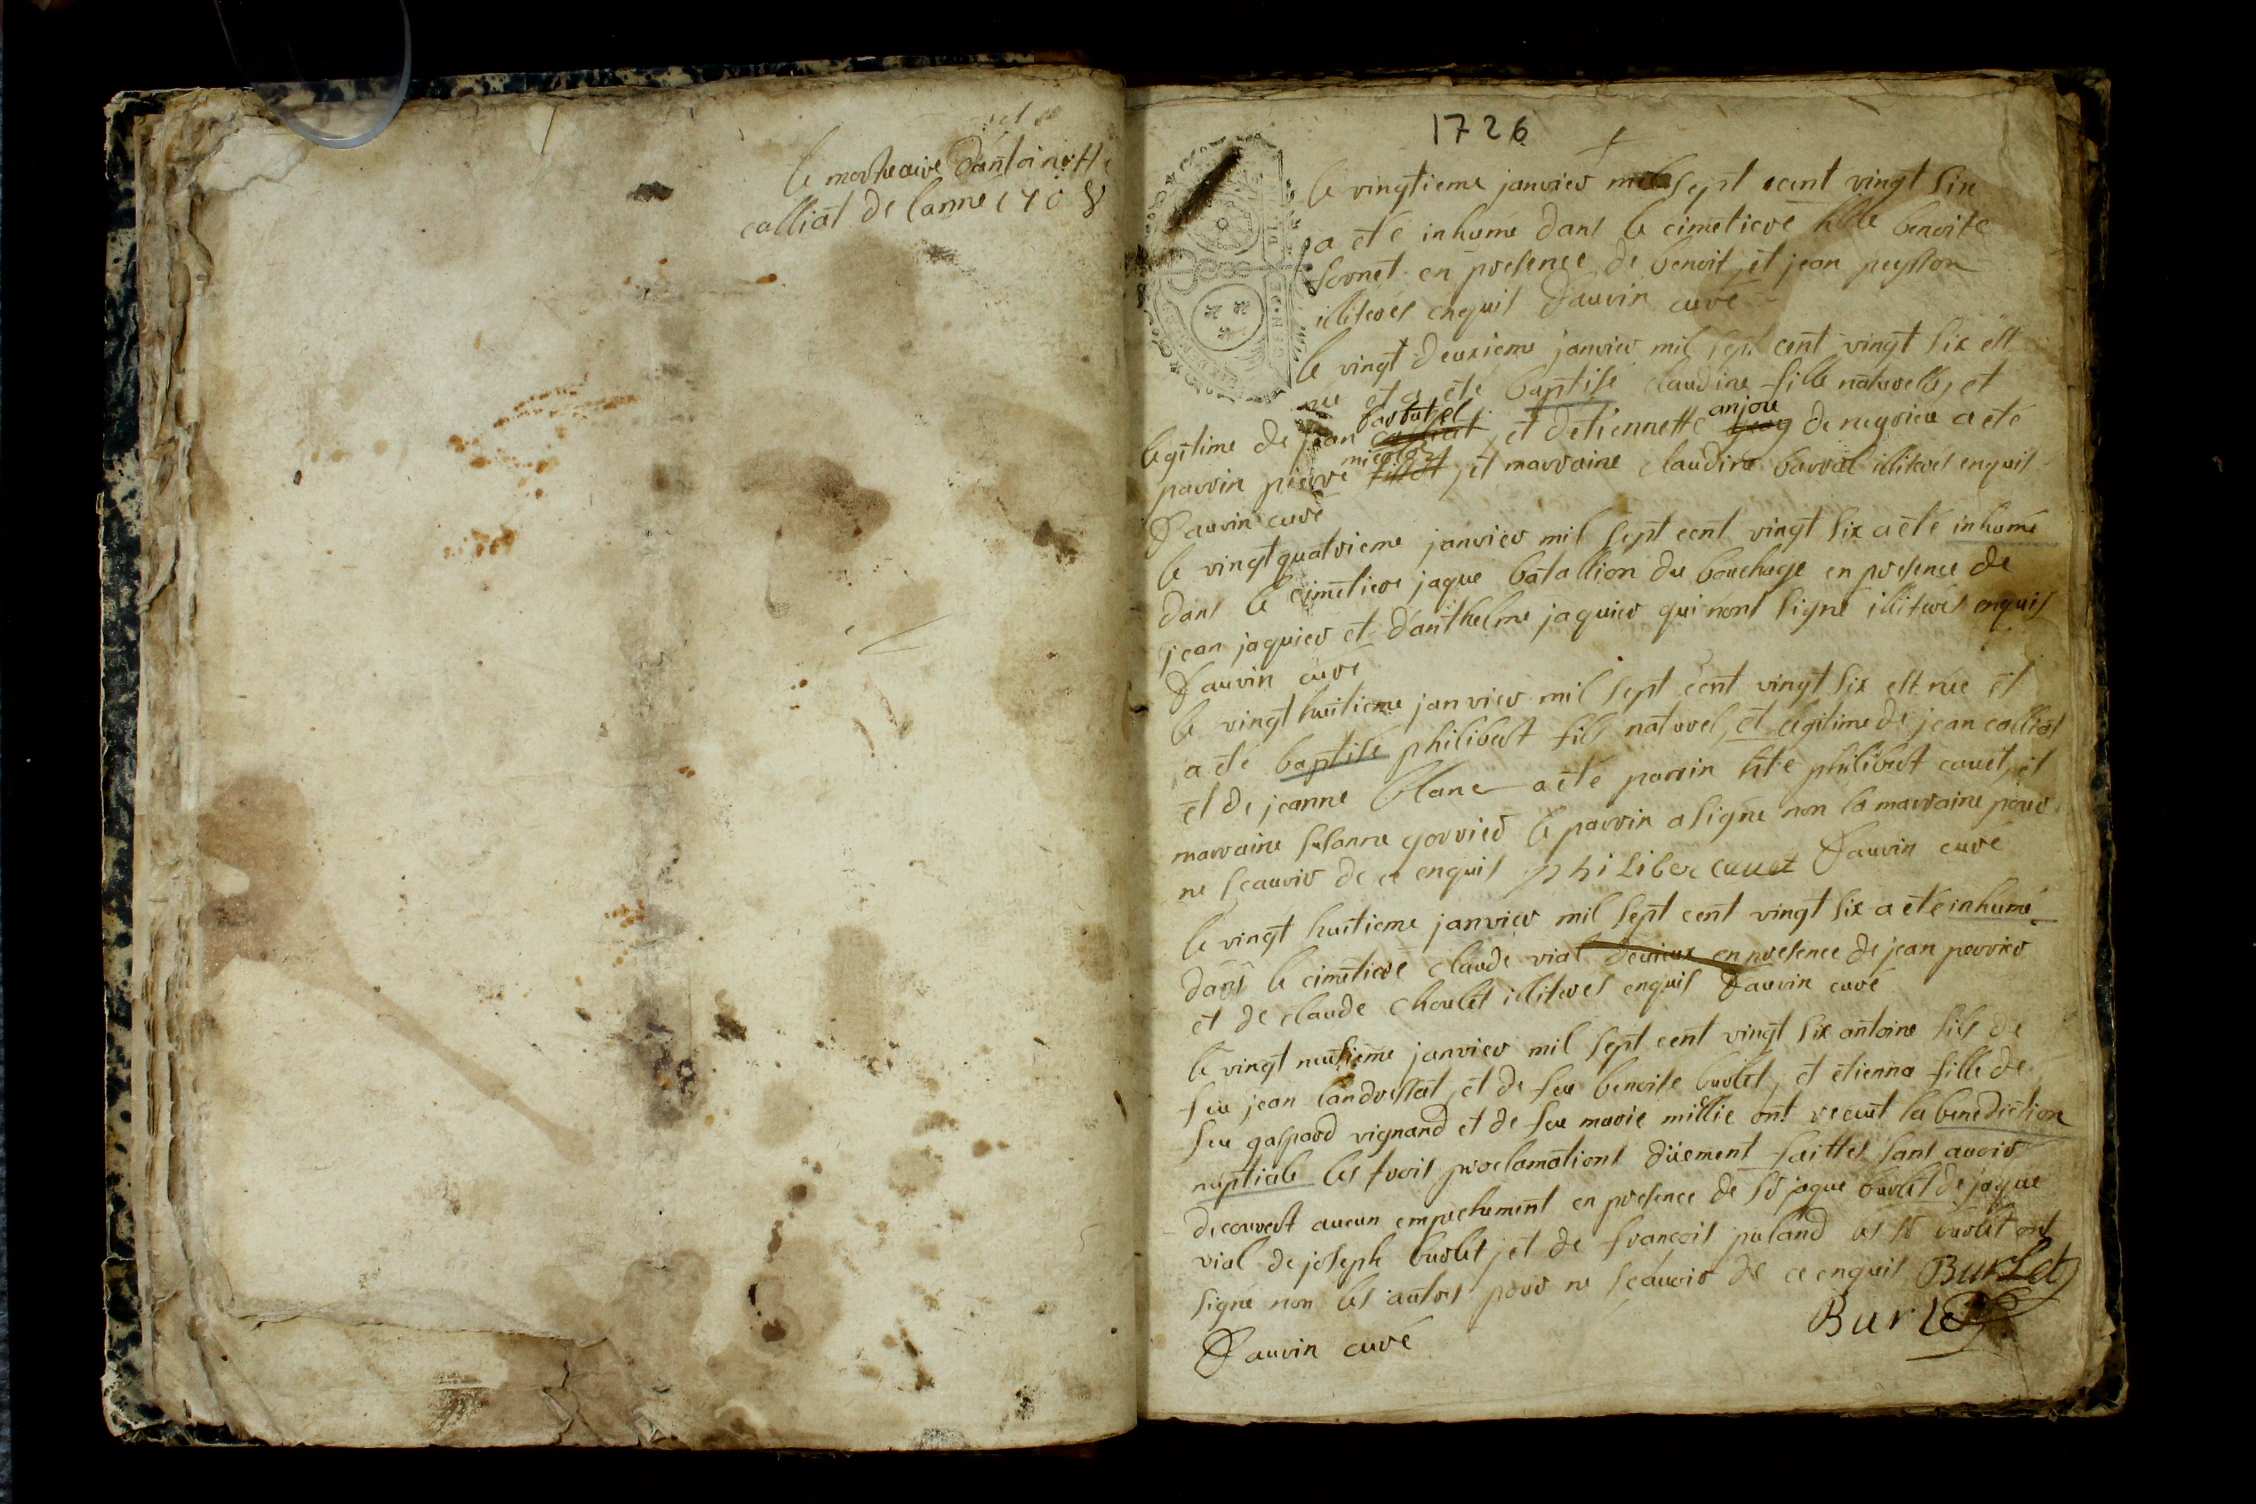 le mortueaire dantoinette
calliat de lanne 1708
1726
le vingtieme janvier mil sept cent vingt six
a eté inhume dans le cimetiere hble benoite
sornet en presence de benoit, et jean peysson
illiteres enquis Dauvin curé
le vingt deuxieme janvier mil sept cent vingt six est
née et a eté baptisé claudine fille naturelle, et
barbatel anjou
legitime de jean et detiennette de rugrieu a eté
micoloz
parrin pierre et marraine claudine barral illiteres enquis
Dauvin curé
le vingt quatrieme janvier mil sept cent vingt six a eté inhumé
dans le cimetiere jaque batallion du bouchage en presence de
jean jaquier et danthelme jaquier qui nont signé illiteres enquis
Dauvin curé
le vingt huitieme janvier mil sept cent vingt six est née et
a eté baptisé philibert fils naturel, et legitime de jean calliat
et de jeanne blanc a eté parrin hte philibert cuuet, et
marraine susanne gorrier le parrin a signé non la marraine pour
ne sçauoir de ce enquis philiber cuuet Dauvin curé
le vingt huitieme janvier mil sept cent vingt six a eté inhumé
dans le cimetiere claude vial en presence de jean perrier
et de claude choulet illiteres enquis Dauvin curé
le vingt neufieme janvier mil sept cent vingt six antoine fils de
feu jean landressat, et de feu benoite burlet, et etienna fille de
feu gaspard vignand et de feu marie millie ont receut la benediction
nuptiale les trois proclamations düement faittes sans auoir
decouvert aucun empechement en presence de sr jaque burlet de jaque
vial de joseph burlet, et de françois puland les sr burlet ont
signé non les autres pour ne sçauoir de ce enquis Burlet
Burlet
Dauvin curé